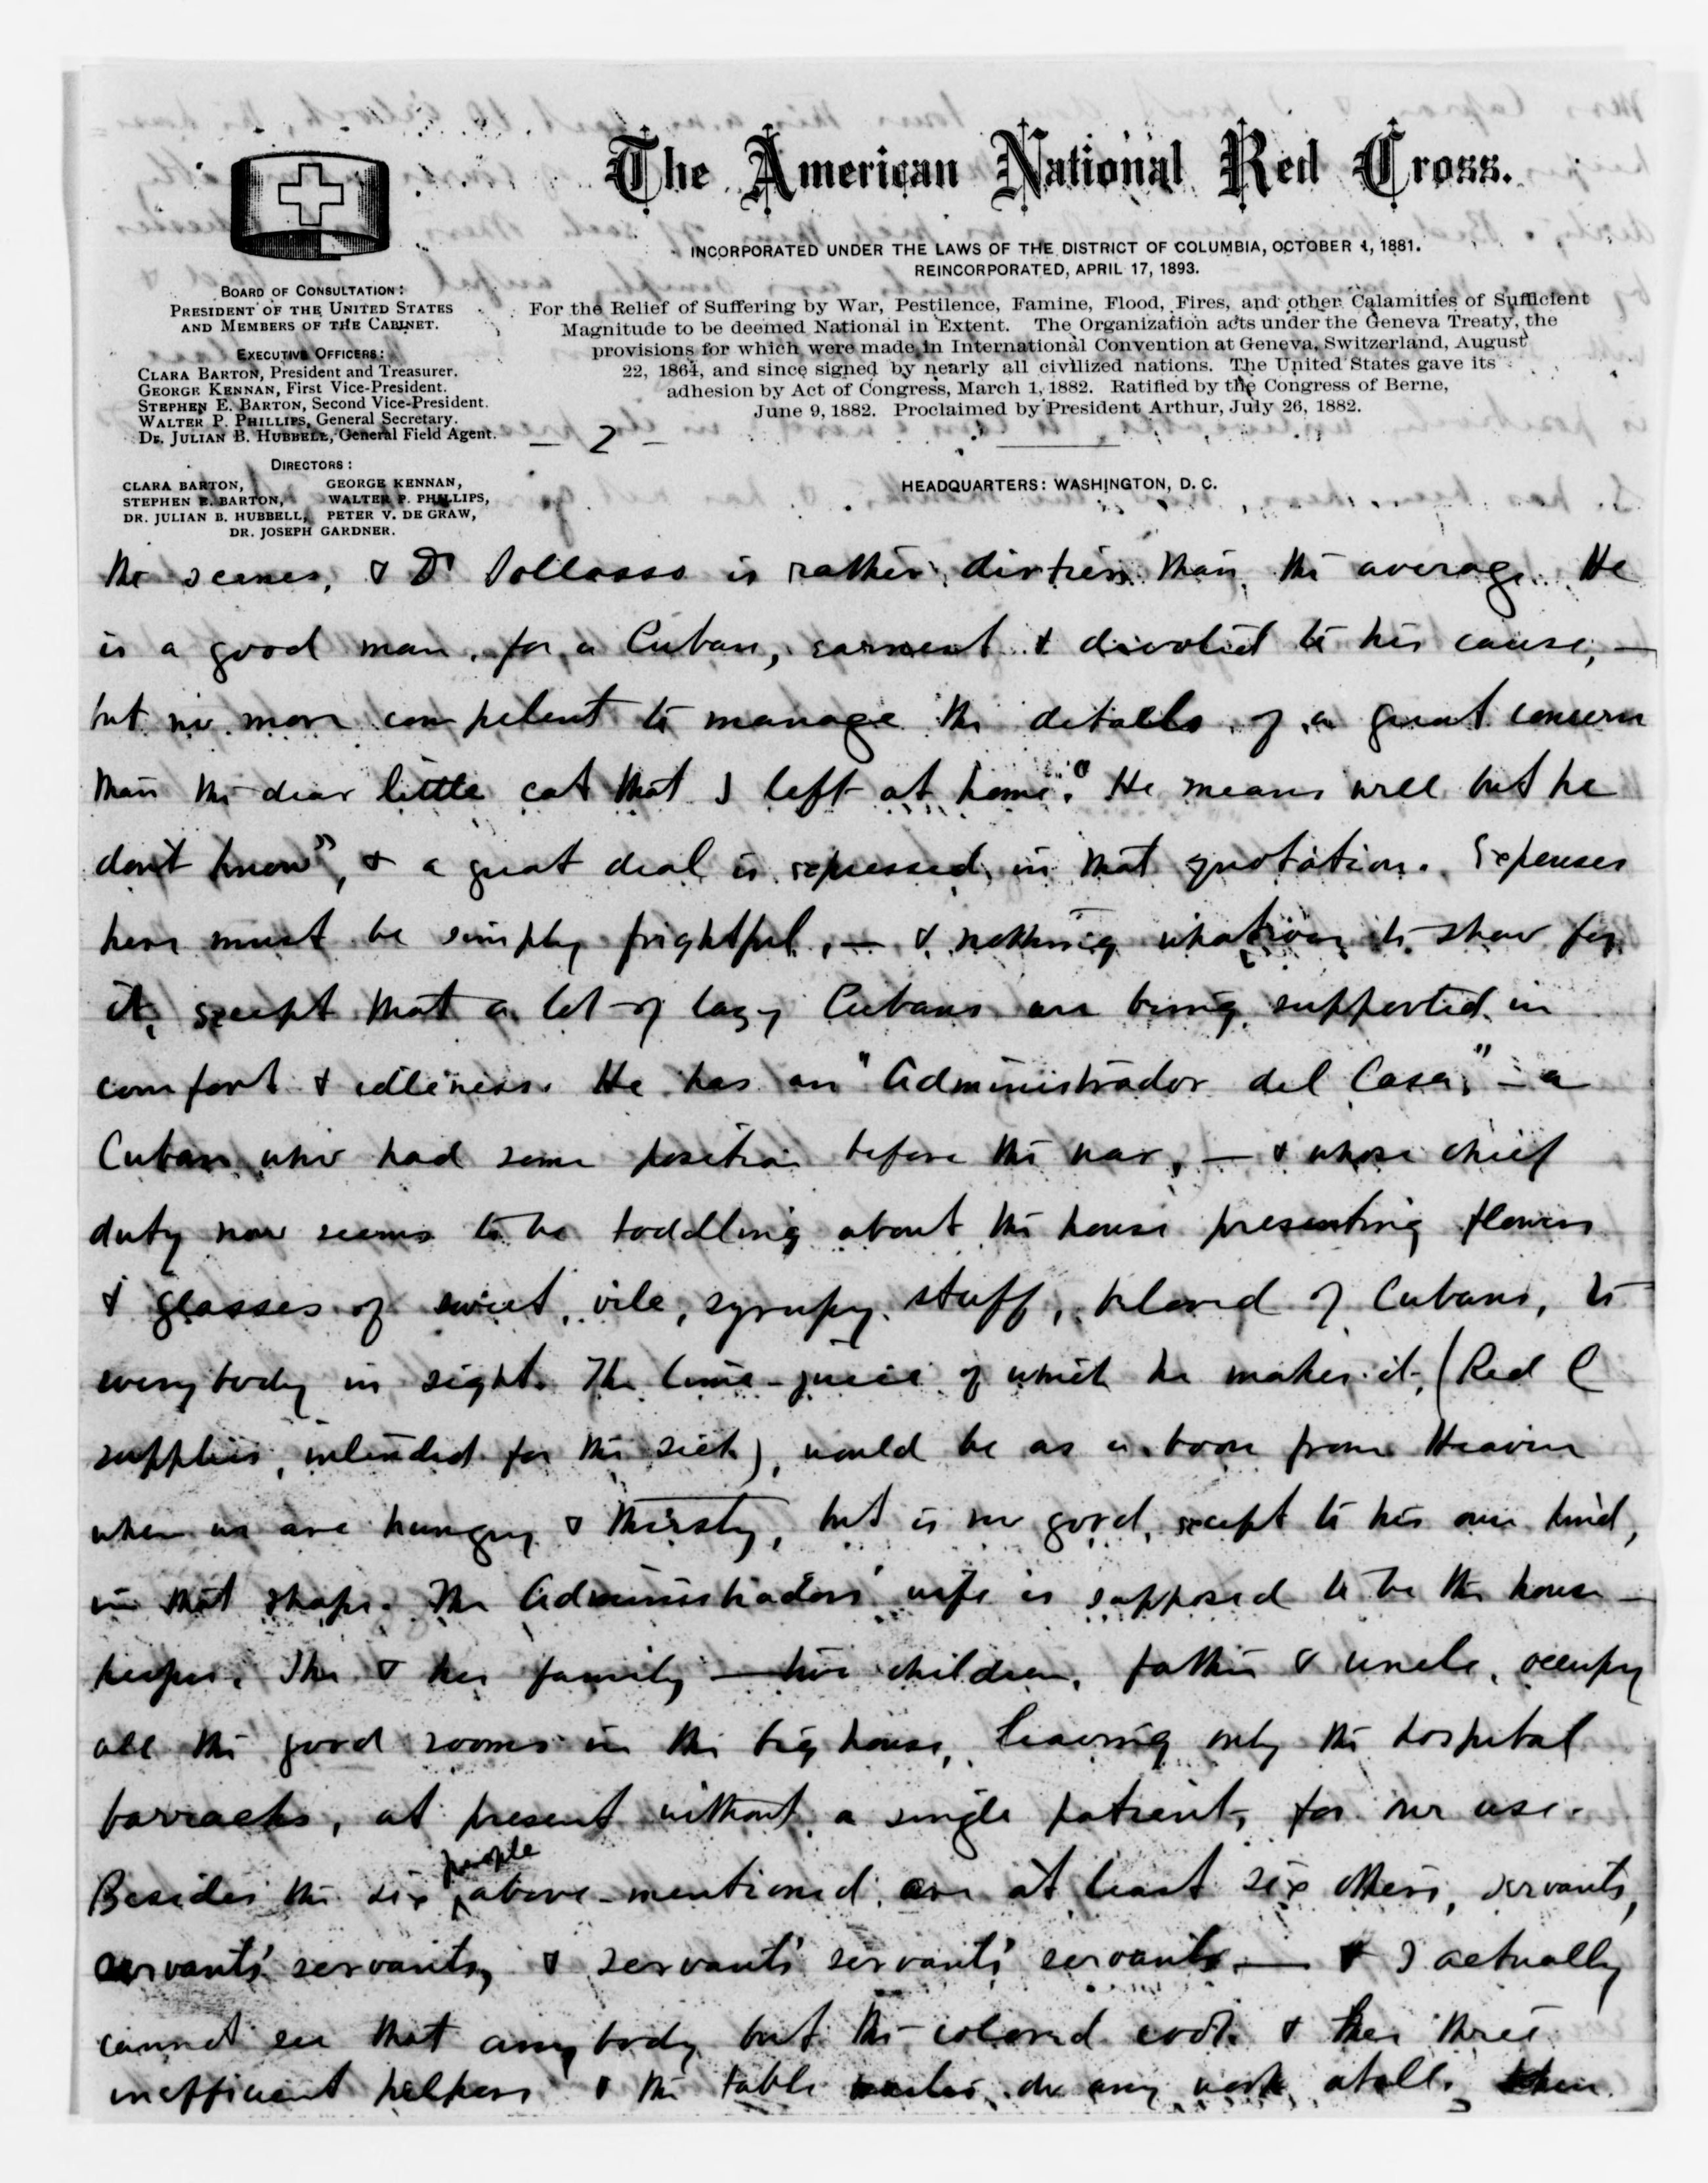 The American National Red Cross.
INCORPORATED UNDER THE LAWS OF THE DISTRICT OF COLUMBIA, OCTOBER 1, 1881.
REINCORPORATED, APRIL 17, 1893.
For the Relief of Suffering by War, Pestilence, Famine, Flood, Fires, and other Calamities of Sufficient
Magnitude to be deemed National in Extent. The Organization acts under the Geneva Treaty, the
provisions for which were made in International Convention at Geneva, Switzerland, August
22, 1864, and since signed by nearly all civilized nations. The United States gave its
adhesion by Act of Congress, March 1, 1882. Ratified by the Congress of Berne,
June 9, 1882. Proclaimed by President Arthur, July 26, 1882.
HEADQUARTERS: WASHINGTON, D. C.
BOARD OF CONSULTATION:
PRESIDENT OF THE UNITED STATES
AND MEMBERS OF THE CABINET.
EXECUTIVE OFFICERS:
CLARA BARTON, President and Treasurer.
GEORGE KENNAN, First Vice-President.
STEPHEN E. BARTON, Second Vice-President.
WALTER P. PHILLIPS, General Secretary.
DR. JULIAN B. HUBBELL, General Field Agent.
DIRECTORS:
CLARA BARTON, GEORGE KENNAN,
STEPHEN E. BARTON, WALTER P. PHILLIPS,
DR. JULIAN B. HUBBELL, PETER V. DE GRAW,
DR. JOSEPH GARDNER.
— 2 —
the scenes, & Dr Sollosso is rather dirtier than the average. He
is a good man, for a Cuban, earnest & devoted to his cause, —
but no more competent to manage the details of a great concern
than the dear little cat that I left at home. "He means well but he
don't know", & a great deal is expressed in that quotation. Expenses
here must be simply frightful, — & nothing whatever to show for
it, except that a lot of lazy Cubans are being supported in
comfort & idleness. He has an "Administrador del Casa," — a
Cuban who had some position before the war, — & whose chief
duty now seems to be toddling about the house presenting flowers
& glasses of sweet, vile, syrupy stuff, beloved of Cubans, to
everybody in sight. The lime-juice of which he makes it, (Red C
supplies, intended for the sick), would be as a boon from Heaven
when we are hungry & thirsty, but is no good, except to his own kind,
in that shape. The Administradors' wife is supposed to be the house-
keeper. She & her family — two children, father & uncle, occupy
all the good rooms in the big house, leaving only the hospital
barracks, at present without a single patient, for our use.
Besides the six people above-mentioned, are at least six others, servants,
servants' servants, & servants' servants' servants — & I actually
cannot see that anybody but the colored cook & her three
inefficient helpers & the table do any work atall.